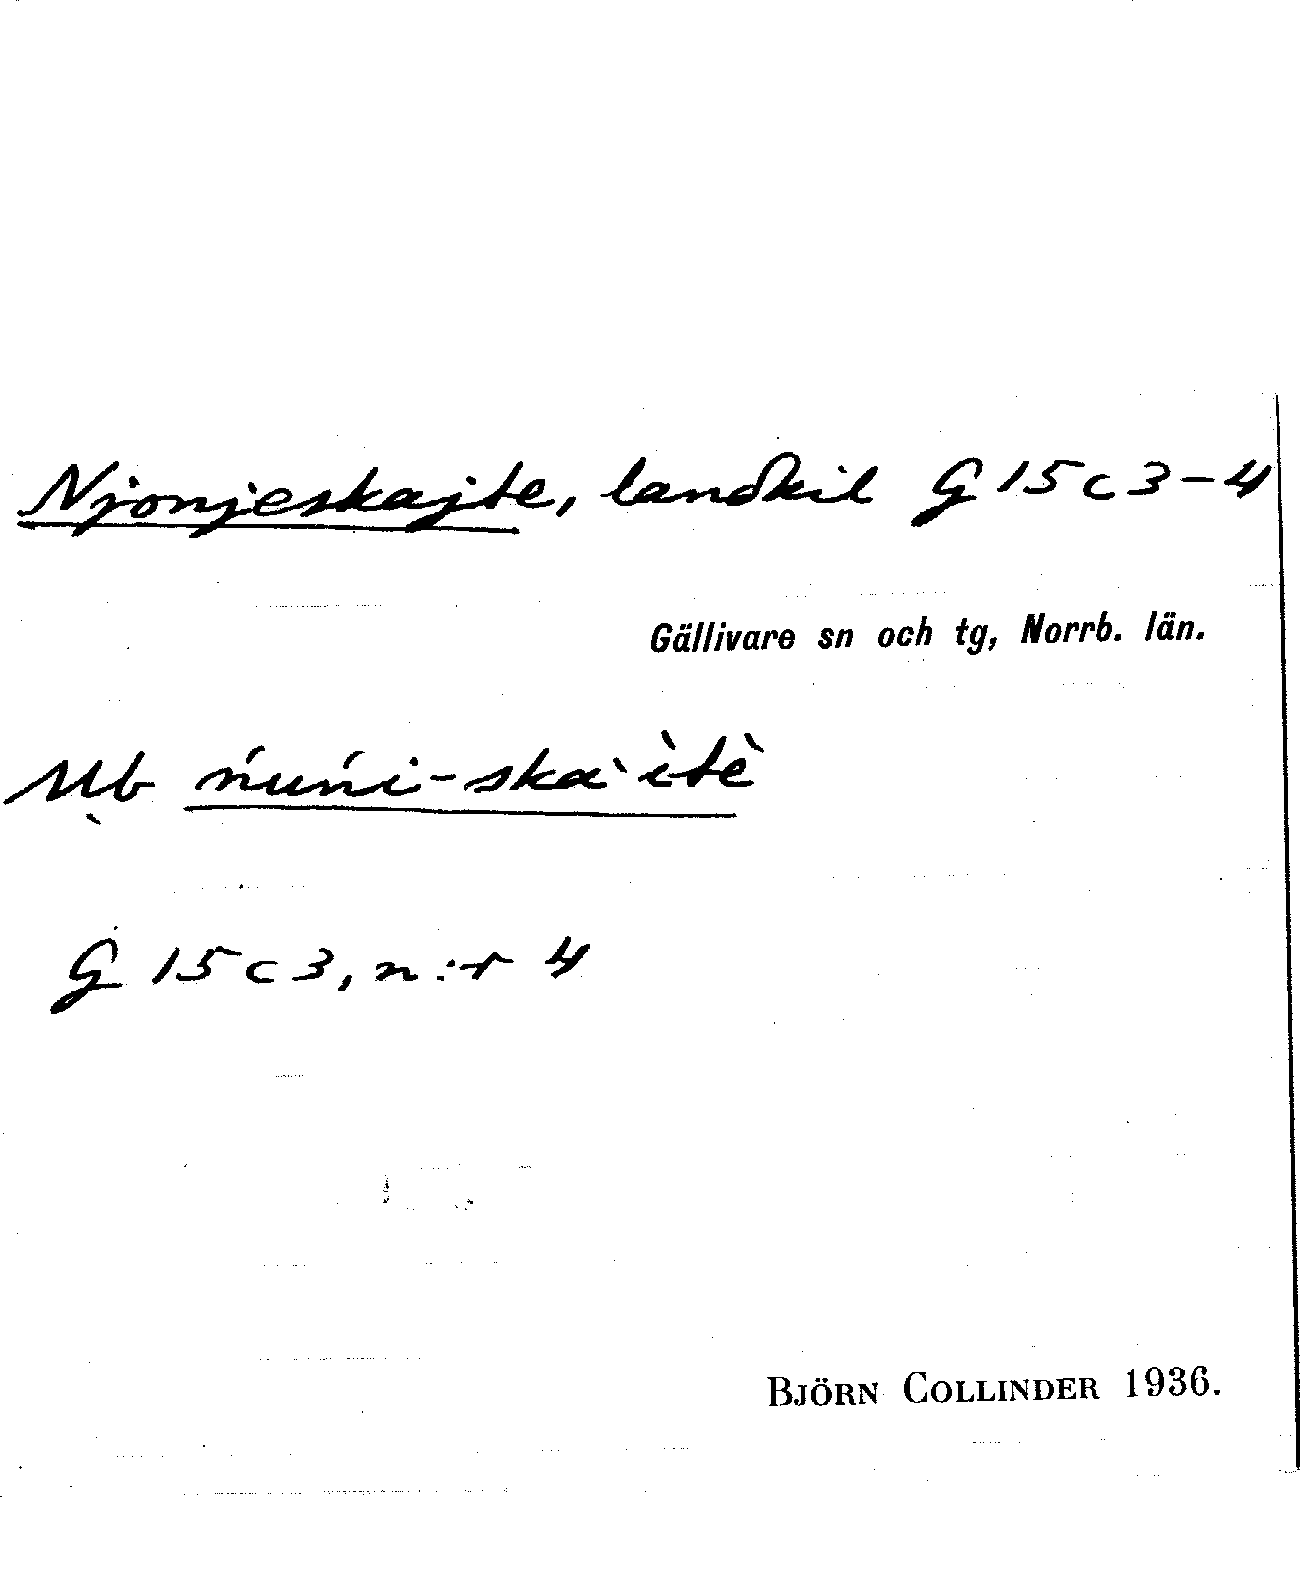 Njonjeskajte, landkil G 15 c 3-4
Gällivare sn och tg, Norrb. län.
Ub ńuńi-skaˋìtè
G 15 c 3, n:r 4
BJÖRN COLLINDER 1936.